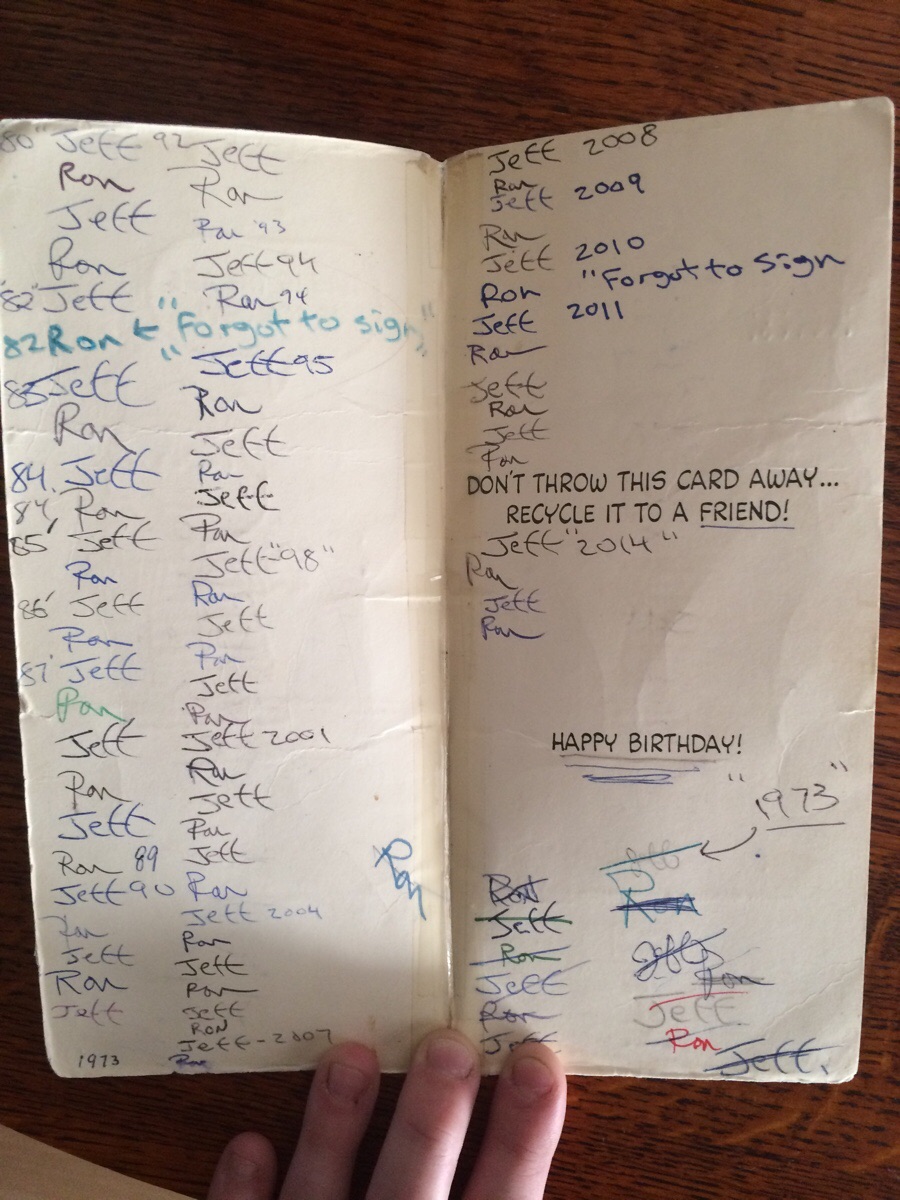 80" Jeff 92 Jeff
Ron Ron
Jeff Ron '93
Ron Jeff 94
'82' Jeff Ron 94
82 Ron ← "Forgot to sign"
83 Jeff Jeff 95
Ron Ron
Jeff
84. Jeff Ron
84' Ron Jeff
85' Jeff Ron
Ron Jeff "98"
86' Jeff Ron
Ron Jeff
87' Jeff Ron
Ron Jeff
Jeff Ron
Ron Jeff 2001
Jeff Ron
Ron 89 Jeff
Jeff 90 Ron
Ron Jeff
Jeff Ron
Ron Jeff 2004
Jeff Ron
Jeff
Ron
Jeff
RON
Jeff - 2007
1973 Ron
Ron
Jeff 2008
Ron
Jeff 2009
Ron
Jeff 2010
Ron "Forgot to sign
Jeff 2011
Ron
Jeff
Ron
Jeff
Ron
DON'T THROW THIS CARD AWAY...
RECYCLE IT TO A FRIEND!
Jeff "2014"
Ron
Jeff
Ron
HAPPY BIRTHDAY!
"1973"
Jeff
Ron Ron
Jeff
Ron Jeff
Jeff Ron
Ron Jeff
Jeff Ron
Jeff.